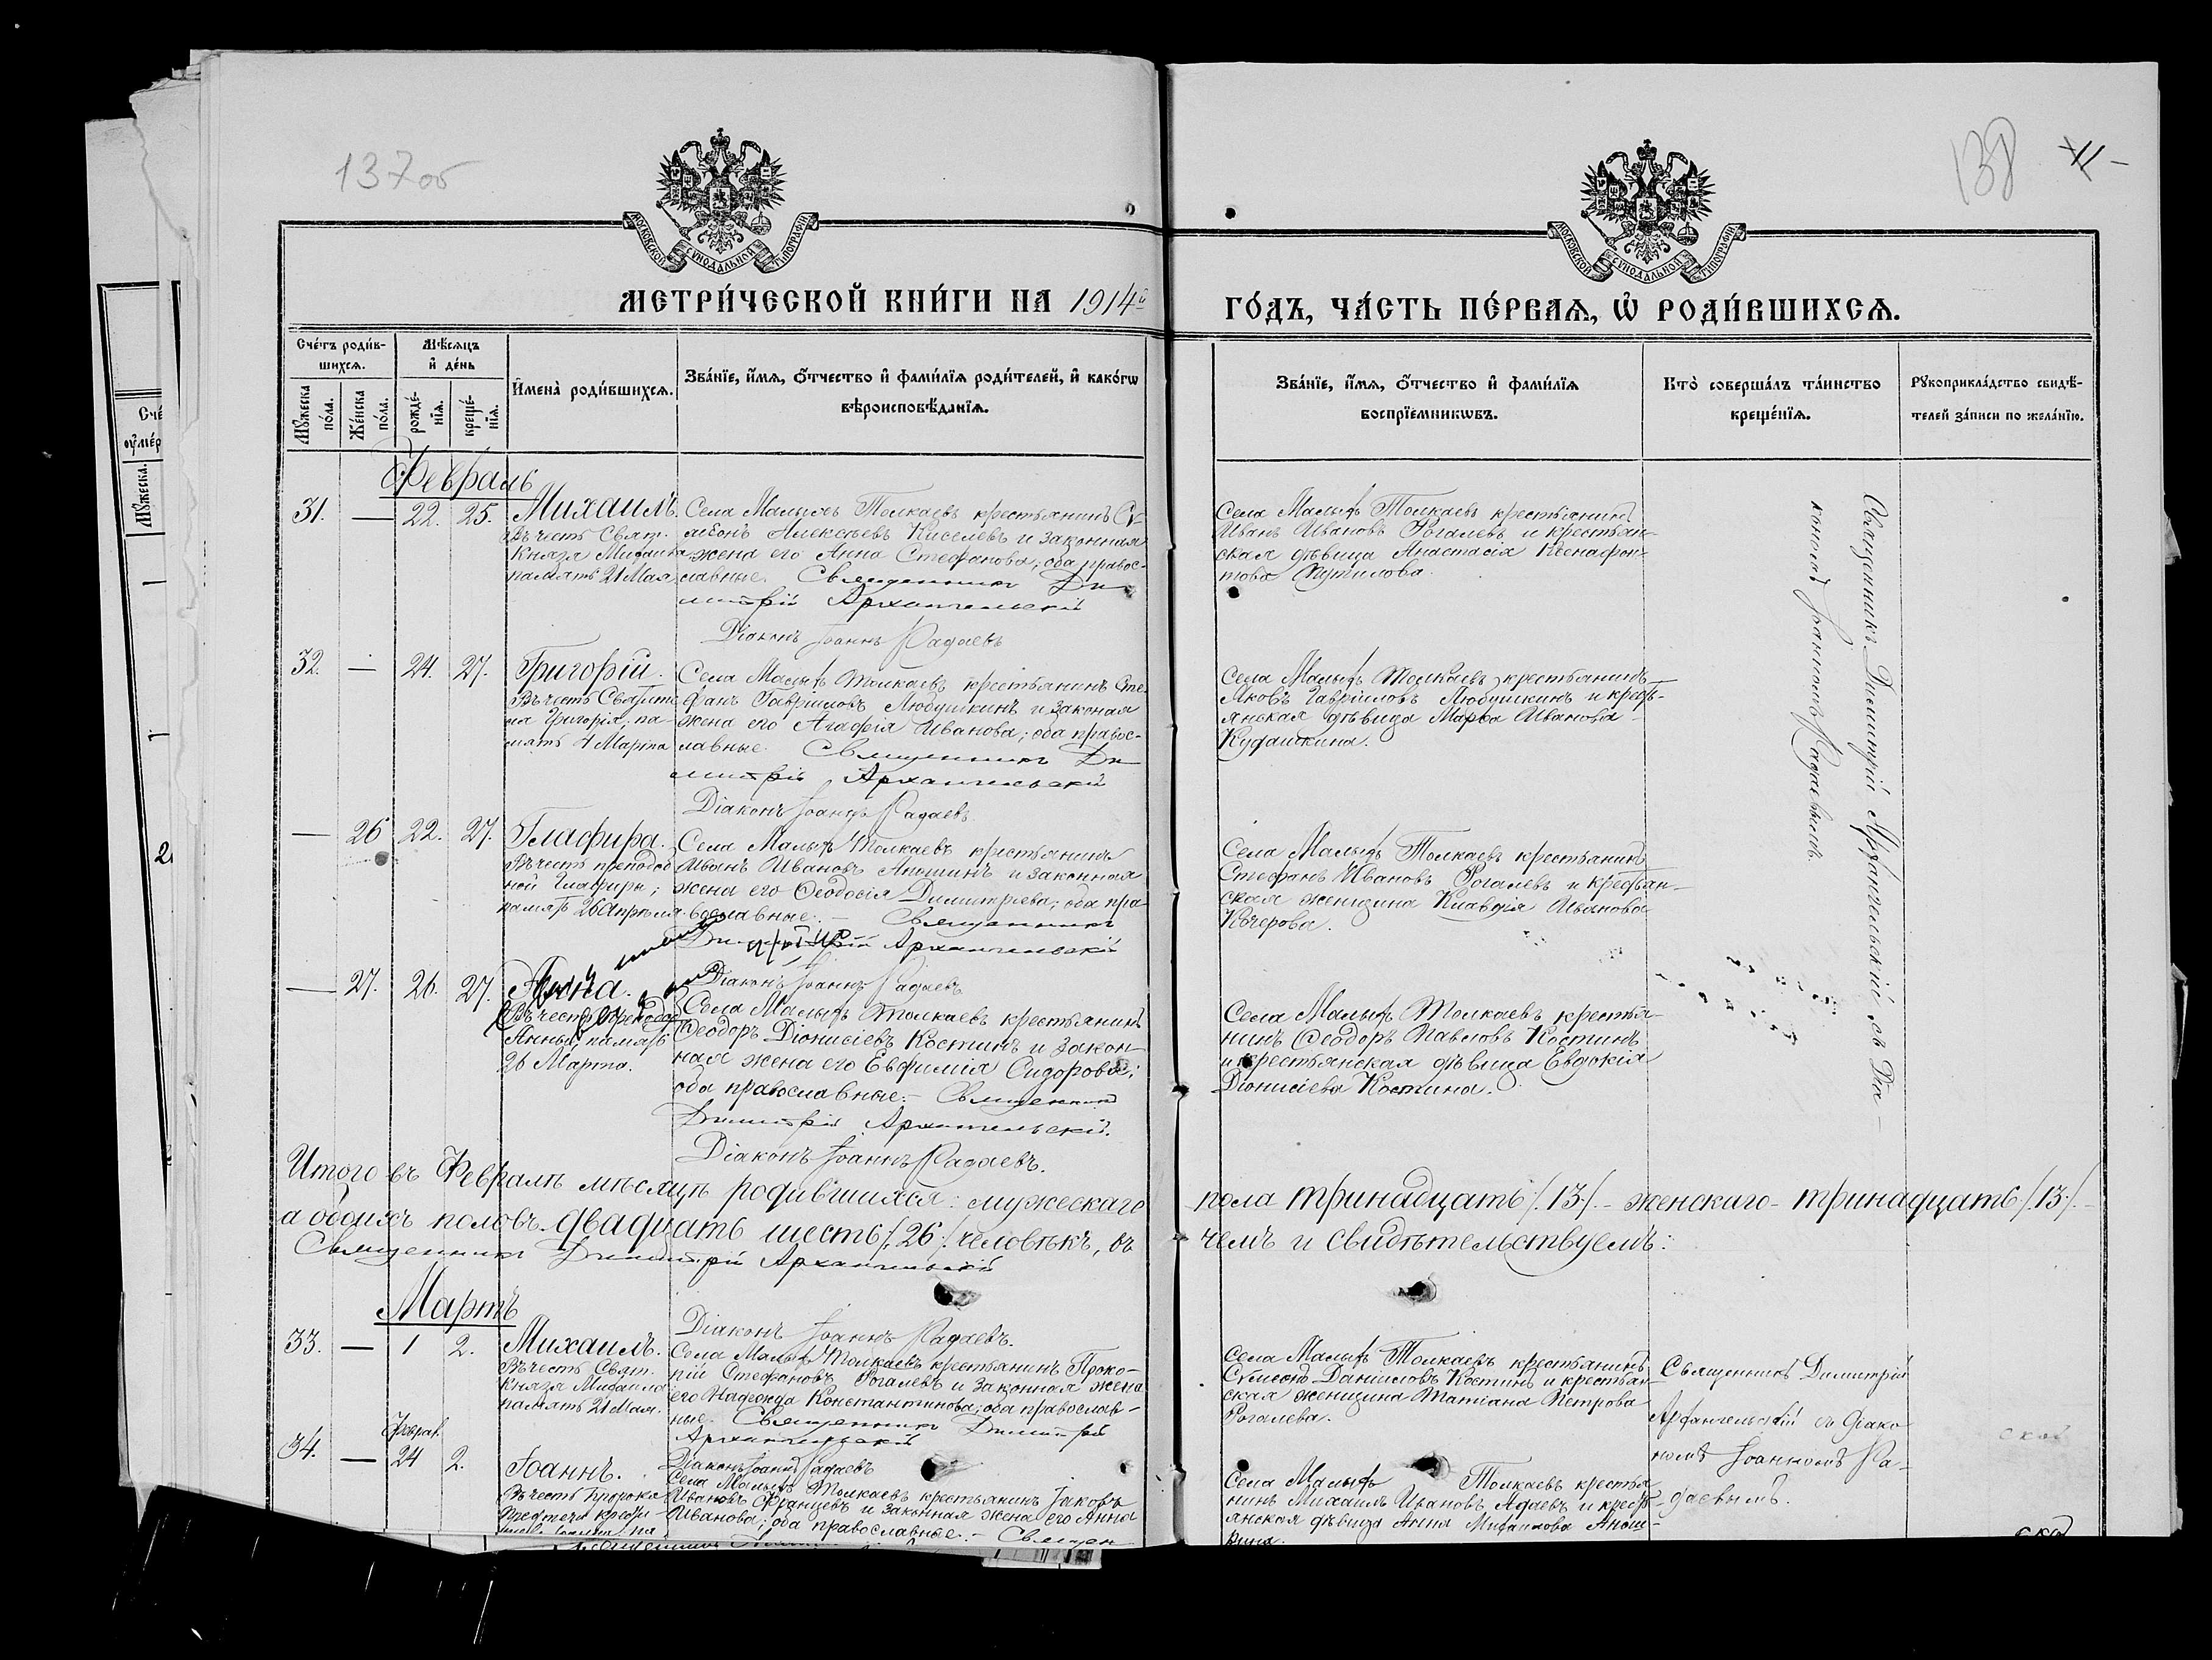 137об
138
МОСКОВСКОЙ СѴНОДАЛЬНОЙ ТИПОГРАФІИ
МОСКОВСКОЙ СѴНОДАЛЬНОЙ ТИПОГРАФІИ
МЕТРИ́ЧЕСКОЙ КНИ́ГИ НА 1914й ГО́ДЪ, ЧА́СТЬ ПЕ́РВАѦ, Ѡ РОДИ́ВШИХСѦ.
Сче́тъ роди́в-
шихсѧ.
Мꙋжеска по́ла.
Же́нска по́ла.
Мѣ́сѧцъ
и҆ де́нь
рожде́-
нїѧ.
креще́-
нїѧ.
И҆мена̀ роди́вшихсѧ.
Зва́нїе, и҆́мѧ, ѻ҆́тчество и҆ фами́лїѧ роди́телей, и҆ како́гѡ
вѣроисповѣ́данїѧ.
Зва́нїе, и҆́мѧ, ѻ҆́тчество и҆ фами́лїѧ
воспрїе́мникѡвъ.
Кто̀ соверша́лъ та́инство
креще́нїѧ.
Рꙋкоприкла́дство свидѣ́-
телей за́писи по жела́нїю.
Февраль
31. — 22. 25. Михаилъ.
Въ честь Свят.
Князя Михаила
память 21 Мая
Села Малыхъ Толкаевъ крестьянинъ Сѵ-
меонъ Алексѣевъ Киселевъ и законная
жена его Анна Стефанова; оба правос-
славные. Священникъ Ди-
митрій Архангельскій
Діаконъ Іоаннъ Радаевъ
Села Малыхъ Толкаевъ крестьянинъ
Иванъ Ивановъ Рогалевъ и крестьян-
ская дѣвица Анастасія Ксенофон-
това Путилова.
Священникъ Димитрій Архангельскій съ Діа-
кономъ Іоанномъ Радаевымъ.
32. — 24. 27. Григорій.
Въ честь Святите
ля Григорія, па-
мять 4 Марта
Села Малыхъ Толкаевъ крестьянинъ Сте-
фанъ Гавриловъ Любушкинъ и законая
жена его Агафія Иванова; оба правос-
лавные. Священникъ Ди-
митрій Архангельскій
Діаконъ Іоаннъ Радаевъ
Села Малыхъ Толкаевъ крестьянинъ
Яковъ Гавриловъ Любушкинъ и крест-
янская дѣвица Марѳа Иванова
Кудашкина.
— 26 22. 27. Глафира.
Въ честь преподоб
ной Глафиры;
память 26 Апрѣля
Села Малыхъ Толкаевъ крестьянинъ
Иванъ Ивановъ Аношинъ и законная
жена его Ѳеодосія Димитріева; оба пра
вославные. — Священникъ
Димитрій Архангельскій
Діаконъ Іоаннъ Радаевъ
Села Малыхъ Толкаевъ крестьянинъ
Стефанъ Ивановъ Рогалевъ и крестьян-
ская женщина Клавдія Иванова
Кочерова.
— 27. 26. 27. Анна.
Въ честь Преподоб
Анны; память
26 Марта.
Села Малыхъ Толкаевъ крестьянинъ
Ѳеодоръ Діонисіевъ Костинъ и закон-
ная жена его Евфимія Сидорова;
оба православные. — Священникъ
Димитрій Архангельскій.
Діаконъ Іоаннъ Радаевъ.
Села Малыхъ Толкаевъ крестья-
нинъ Ѳеодоръ Павловъ Костинъ
и крестьянская дѣвица Евдокія
Діонисіева Костина.
Итого въ Февралѣ мѣсяцѣ родившихся: мужескаго пола тринадцать /.13./ — женскаго — тринадцать /.13./ —
а обоихъ половъ двадцать шесть /.26./ человѣкъ, въ чемъ и свидѣтельствуемъ:
Священникъ Димитрій Архангельскій
Діаконъ Іоаннъ Радаевъ.
Мартъ
33. — 1 2. Михаилъ.
Въ честь Свят.
Князя Михаила
память 21 Мая.
Села Малыхъ Толкаевъ крестьянинъ Проко-
пій Стефановъ Рогалевъ и законная жена
его Надежда Константинова; оба православ-
ные. Священникъ Димитрій
Архангельскій
Діаконъ Іоаннъ Радаевъ
Села Малыхъ Толкаевъ крестьянинъ
Сѵмеонъ Даниловъ Костинъ и крестьян-
ская женщина Татіана Петрова
Рогалева.
Священникъ Димитрій
Архангельскій съ Діако-
номъ Іоанномъ Ра-
даевымъ.
Феврал.
34. — 24 2. Іоаннъ.
Въ честь Пророка
Предтечи Крести-
Села Малыхъ Толкаевъ крестьянинъ Іаковъ
Ивановъ Францевъ и законная жена его Анна
Иванова; оба православные. — Священ
Села Малыхъ Толкаевъ крестья-
нинъ Михаилъ Ивановъ Адаевъ и крест-
янская дѣвица Анна Михаилова Анош-
кина.